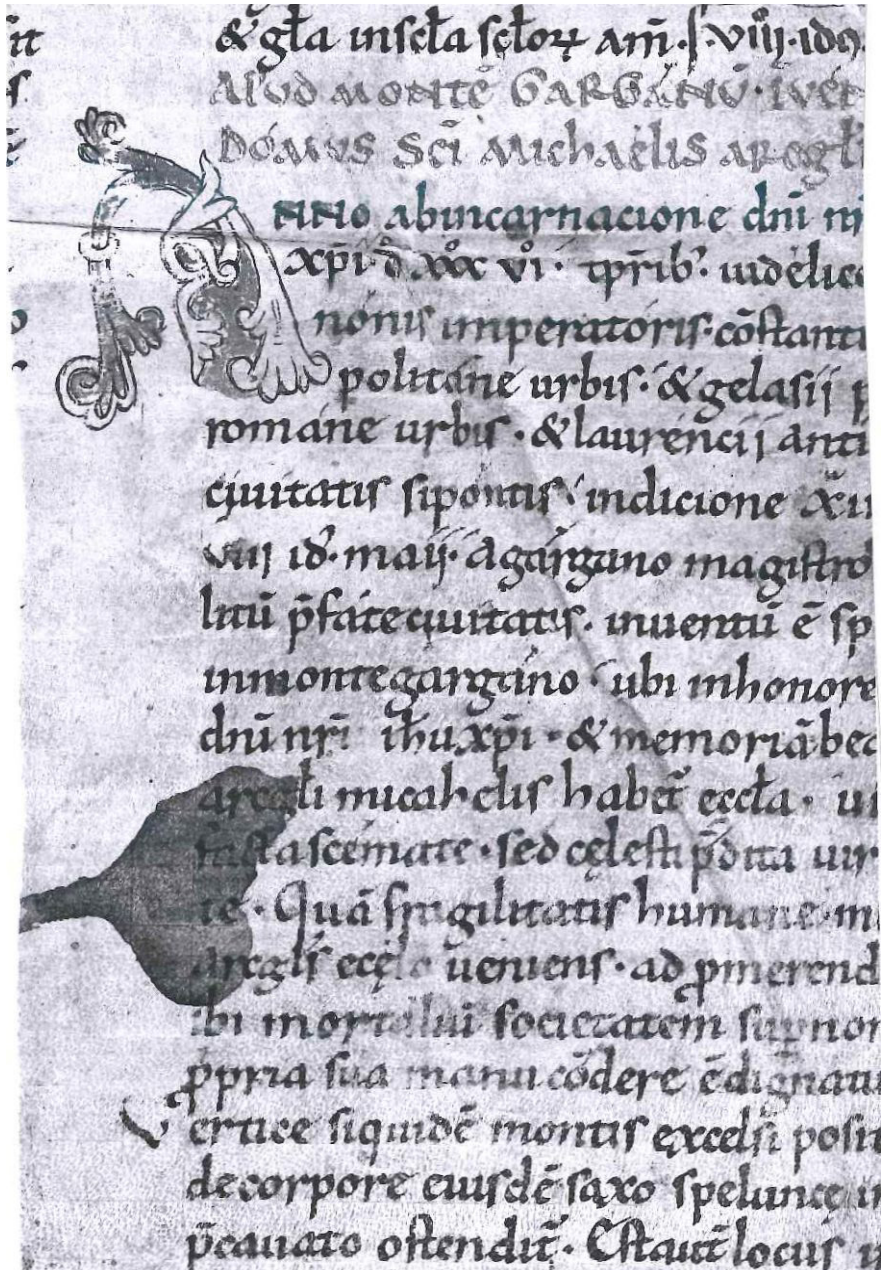 & gl̄a in scl̄a scl̄oꝝ am̄. VIIII. idꝰ
APVD MONTĒ GARGANV̄. IVEN
DOMVS SC̄I MICHAELIS ARCGL̄I
NNO ab incarnacione dn̄i n
xp̄i. d xxx vi. tp̄rib. uidelic
nonis imperatoris. cōstanti
politane urbis. & gelasij p
romane urbis. & laurencij anti
ciuitatis sipontis. indicione xu
viij id. maij. A gargano magistro
litū p̄fate ciuitatis. inuentū ē sp
in monte gargano. ubi in honore
dn̄i nr̄i ih̄u xp̄i. & memoriā bea
arcgl̄i micahelis habet̄ eccl̄a. ui
facta scemate. sed cęlesti p̄dita uir
te. Quā fragilitatis humane. m
arcgl̄s e cęlo ueniens. ad ꝓmerend
ibi mortaliū societatem supnor
ꝓpria sua manu cōdere ē dignatu
Vertice siquidē montis excelsi posit
de corpore eiusdē saxo speluncę i
p̄cauato ostendit̄. Estaut̄ locus